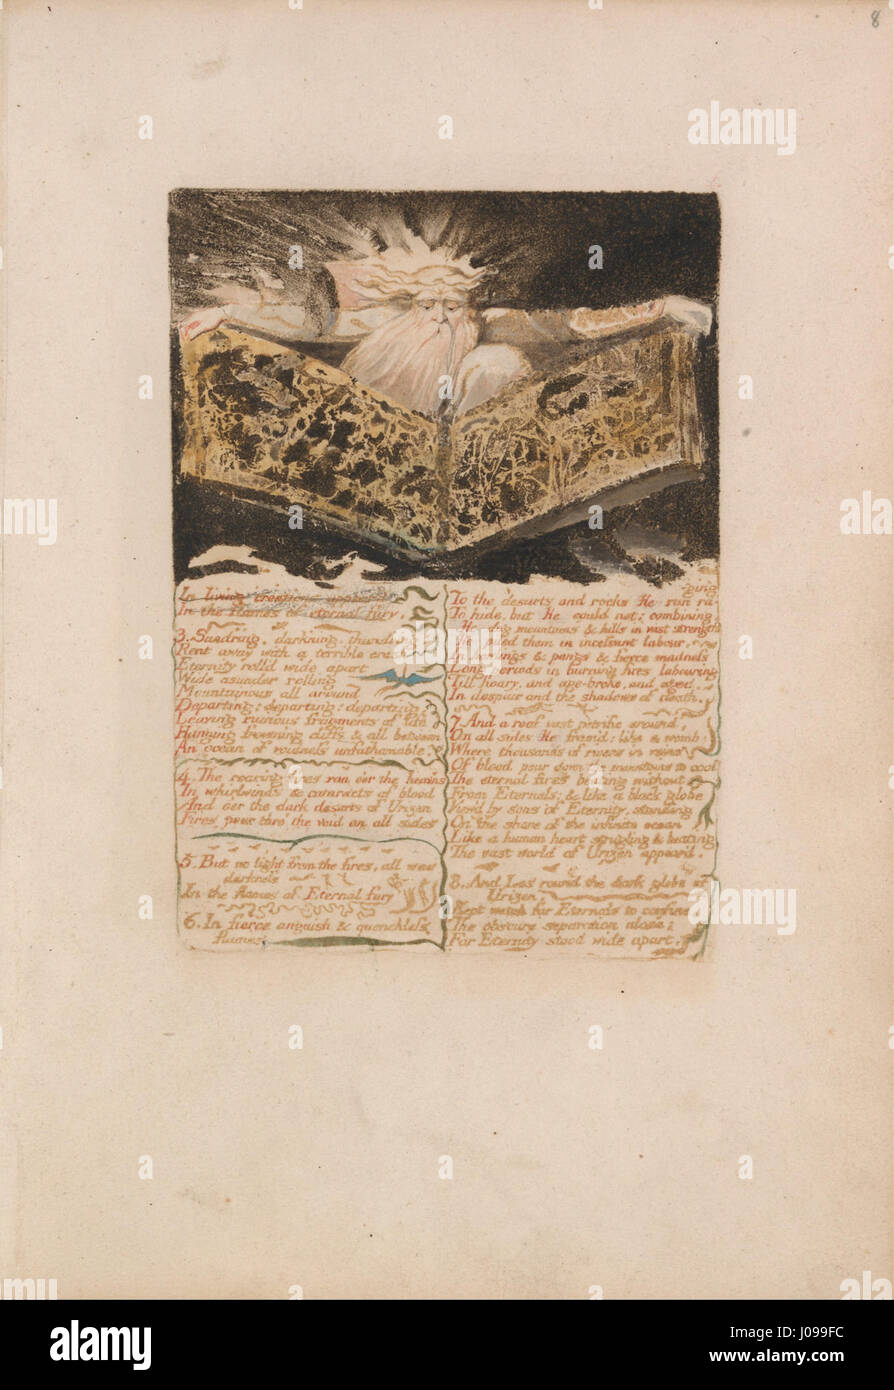 8
In living creations appear'd
In the flames of eternal fury.
3. Sundring, darkning, thundring
Rent away with a terrible crash
Eternity roll'd wide apart
Wide asunder rolling
Mountainous all around
Departing; departing; departing;
Leaving ruinous fragments of life
Hanging frowning cliffs & all between
An ocean of voidness unfathomable
4. The roaring fires ran o'er the heav'ns
In whirlwinds & cataracts of blood
And o'er the dark desarts of Urizen
Fires pour thro' the void on all sides
5. But no light from the fires, all was
darkness
In the flames of Eternal fury
6. In fierce anguish & quenchless
flames
-ging
To the desarts and rocks He ran ra-
To hide, but He could not: combining
He dug mountains & hills in vast strength
He piled them in incessant labour,
In howlings & pangs & fierce madness
Long periods in burning fires labouring
Till hoary, and age-broke, and aged,
In despair and the shadows of death.
7. And a roof vast petrific around,
On all sides He fram'd: like a womb;
Where thousands of rivers in veins
Of blood pour down the mountains to cool
The eternal fires beating without
From Eternals; & like a black globe
View'd by sons of Eternity, standing
On the shore of the infinite ocean
Like a human heart strugling & beating
The vast world of Urizen appear'd.
8. And Los round the dark globe of
Urizen
Kept watch for Eternals to confine
The obscure separation alone;
For Eternity stood wide apart,
alamy
alamy
Image ID: J099FC
www.alamy.com